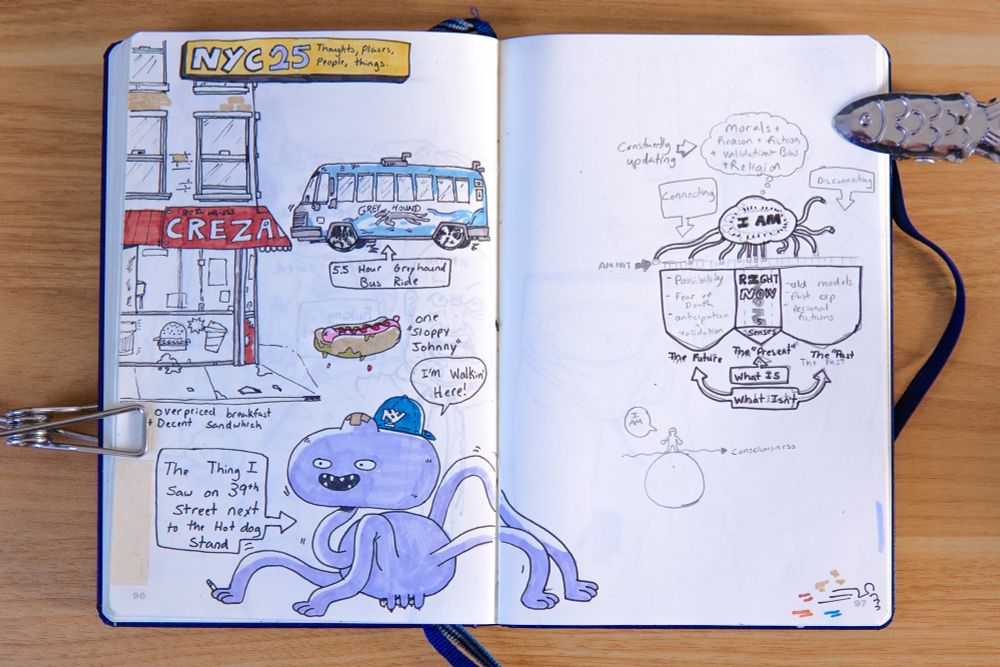 NYC 25
Thoughts, Places,
People, things.
CREZA
GREY HOUND
5.5 Hour Greyhound
Bus Ride
one
"Sloppy
Johnny"
I'm Walkin'
Here!
overpriced breakfast
+ Decent Sandwhich
NY
The Thing I
Saw on 39th
Street next
to the Hot dog
Stand
96
Morals +
Reason + fiction
+ validation + Bias
+ Religion
Constantly
updating
Connecting
Disconnecting
I AM
AM NOT
- Possibility
- Fear of
Death
- anticipation
- validation
RIGHT
NOW
Senses
- old models
- Past exp
- Personal
fictions
The Future
The "Present"
The "Past"
The Past
What IS
What Isn't
I
AM
Consciousness
97